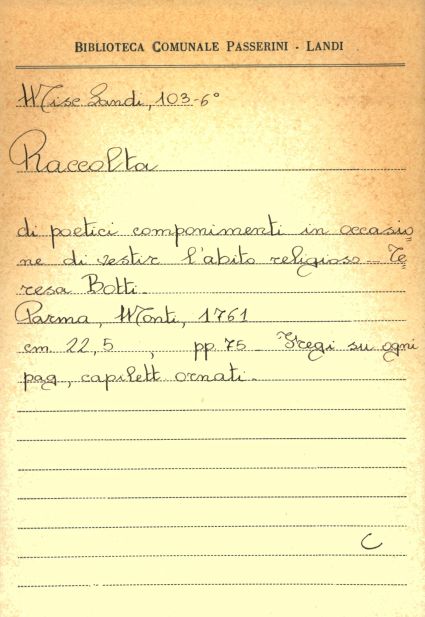 BIBLIOTECA COMUNALE PASSERINI - LANDI
Misc Landi, 103-6°
Raccolta
di poetici componimenti in occasio=
ne di vestir l'abito religioso - Te=
resa Botti.
Parma, Monti, 1761
cm. 22,5 , pp. 75 - Fregi su ogni
pag, capilett ornati.
C